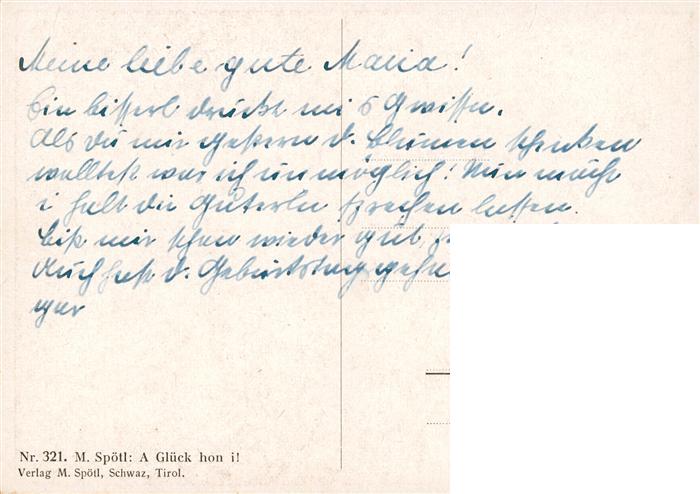 Meine liebe gute Maria!
Ein bisserl druckt mi s Gwissn.
Als du mir gestern d. Blumen schenken
wolltest war ich unmöglich! Nun möcht
i halt die Güterln sprechen lassen.
Bist mir schon wieder gut,
Auch hast d. Geburtstag
gar
Nr. 321. M. Spötl: A Glück hon i!
Verlag M. Spötl, Schwaz, Tirol.